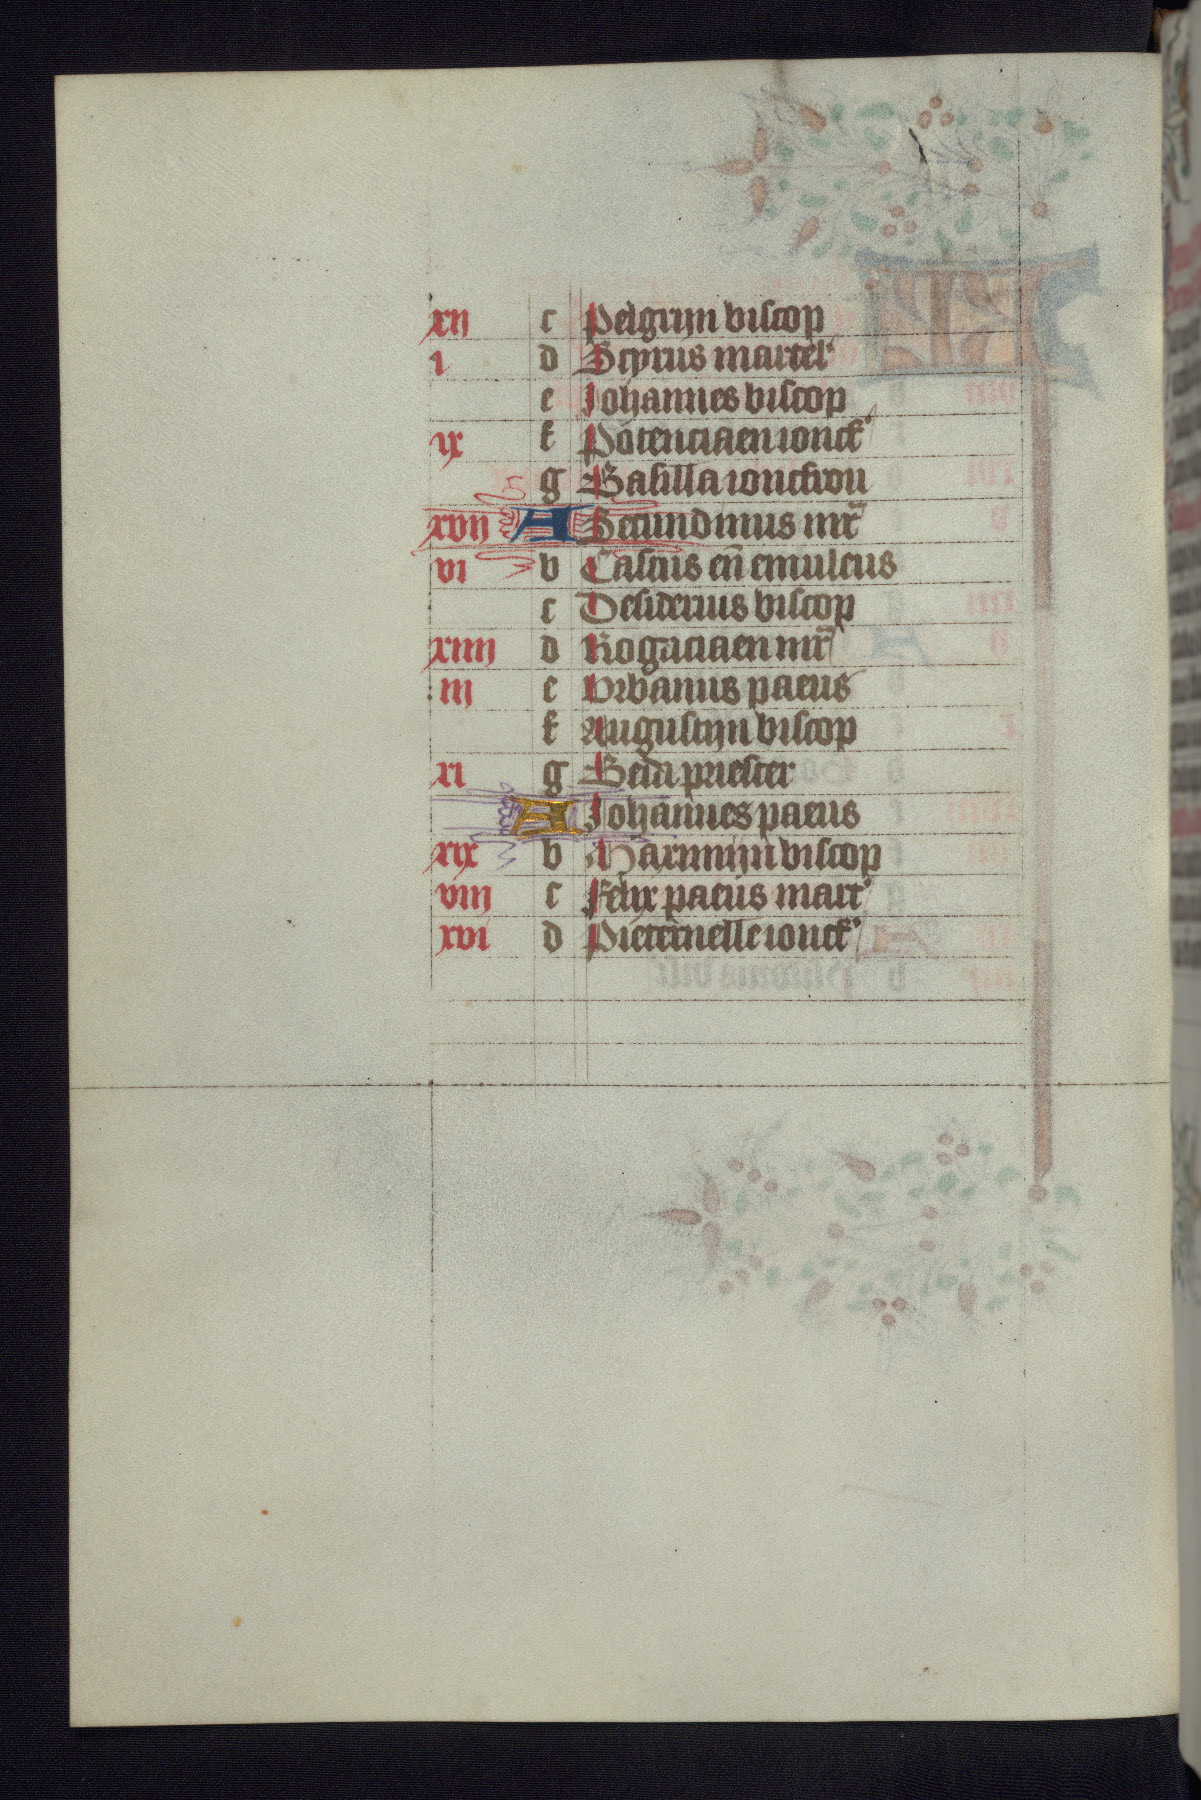 xij c Pelgrijn biscop
i d Scyrus martel'
e Johannes biscop
ix f Potenciaen ioncf'
g Basilla ioncfrou
xvij A Secundinus mr̄
vi b Castus en̄ emulcus
c Desiderius biscop
xiiij d Rogaciaen mr̄
iij e Vrbanus paeus
f Augustijn biscop
xi g Beda priester
A Johannes paeus
xix b Maximijn biscop
viij c Felix paeus mart'
xvi d Pieternelle ioncf'